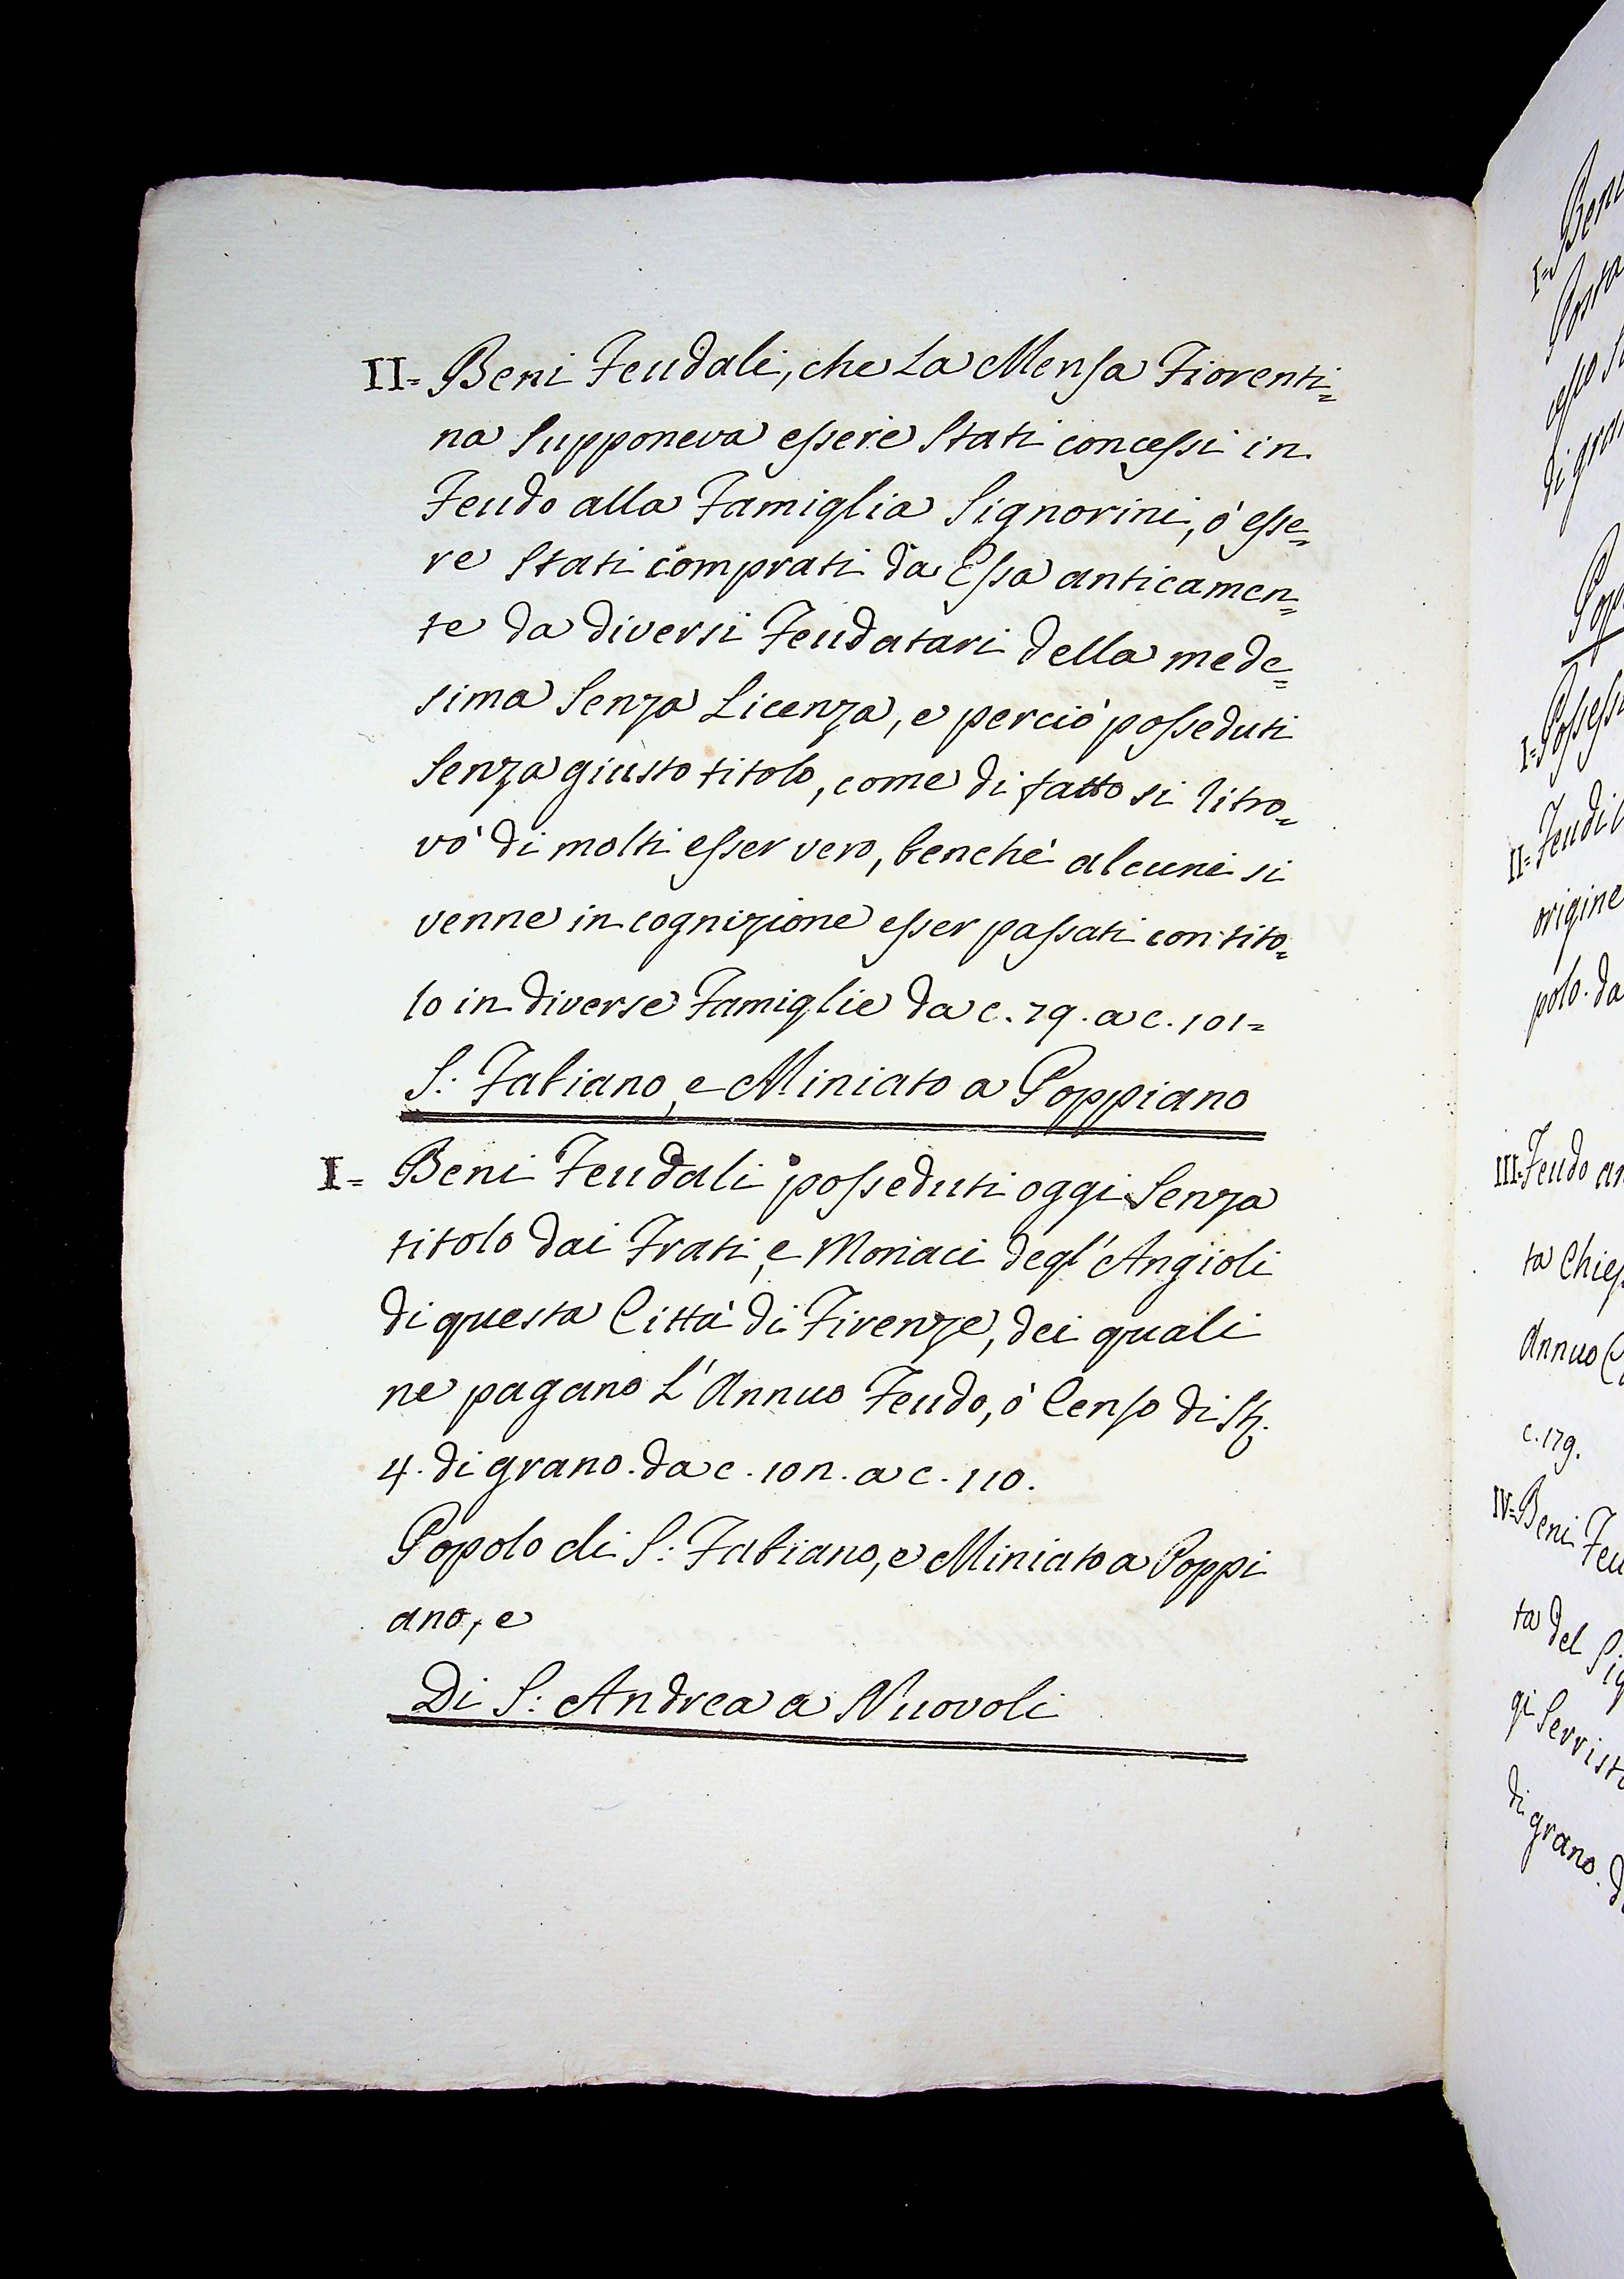 II= Beni Feudali, che La Mensa Fiorenti=
na Supponeva essere Stati concessi in
Feudo alla Famiglia Signorini, ò esse=
re Stati comprati da Essa anticamen=
te da diversi Feudatari della mede=
sima Senza Licenza, e perciò posseduti
Senza giusto titolo, come di fatto si ritro=
vò di molti esser vero, benchè alcuni si
venne in cognizione esser passati con tito=
lo in diverse Famiglie da c. 79. a c. 101=
S: Fabiano, e Miniato a Poppiano
I= Beni Feudali posseduti oggi Senza
titolo dai Frati, e Monaci degl' Angioli
di questa Città di Firenze, dei quali
ne pagano L' Annuo Feudo, ò Censo di
4. di grano. da c. a c. 110.
Popolo di S: Fabiano, e Miniato a Poppi
ano, e
Di S: Andrea a Nuovoli
I= Beni
di gra
I= Possess
II= Feudi
origine
polo. da
III= Feudo an
ta Chies
Annuo C
c. 179.
IV= Beni Feu
ta del Sig
gi Serristo
di grano. d